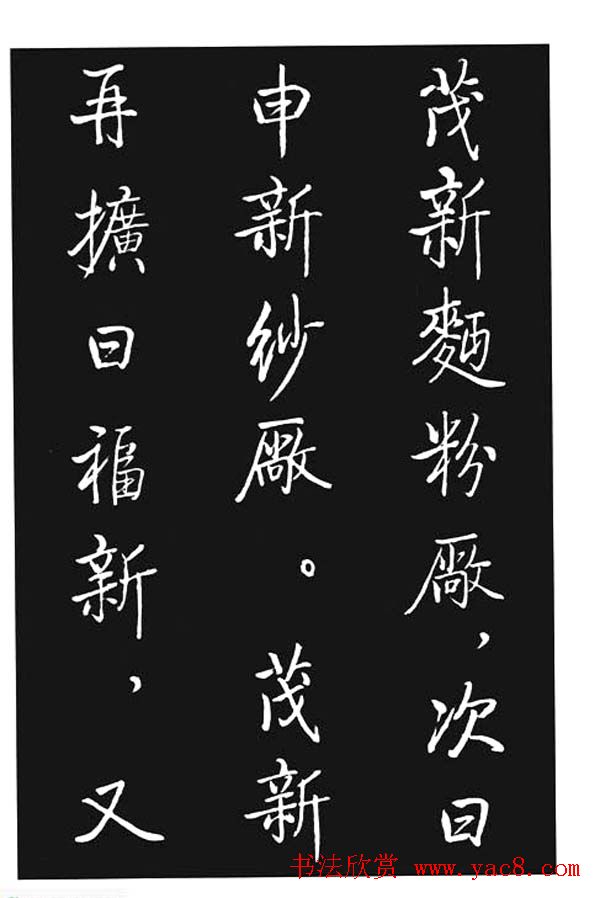 茂新麵粉廠，次曰
申新紗廠。茂新
再擴曰福新，又
书法欣赏 www.yac8.com